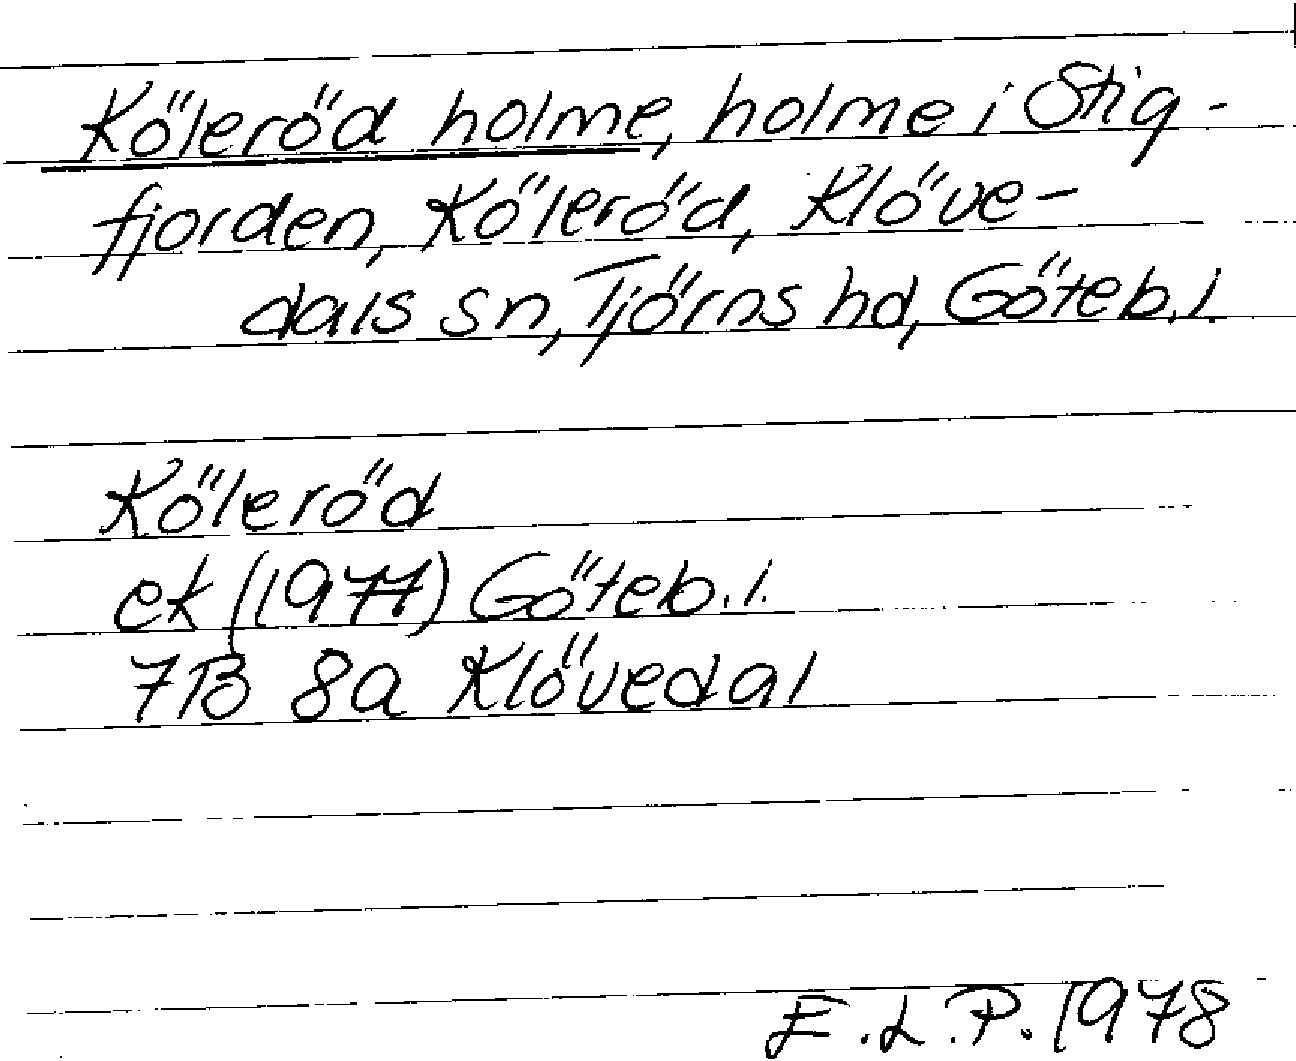 Köleröd holme, holme i Stig-
fjorden, Köleröd, Klöve-
dals sn, Tjörns hd, Göteb. l.
Köleröd
ek (1977) Göteb. l.
7B 8a Klövedal
E.L.P. 1978